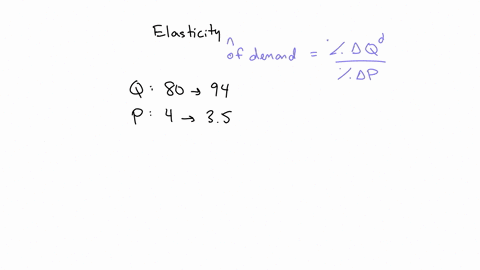 Elasticity ^ of demand = %ΔQᵈ / %ΔP
Q: 80 → 94
P: 4 → 3.5